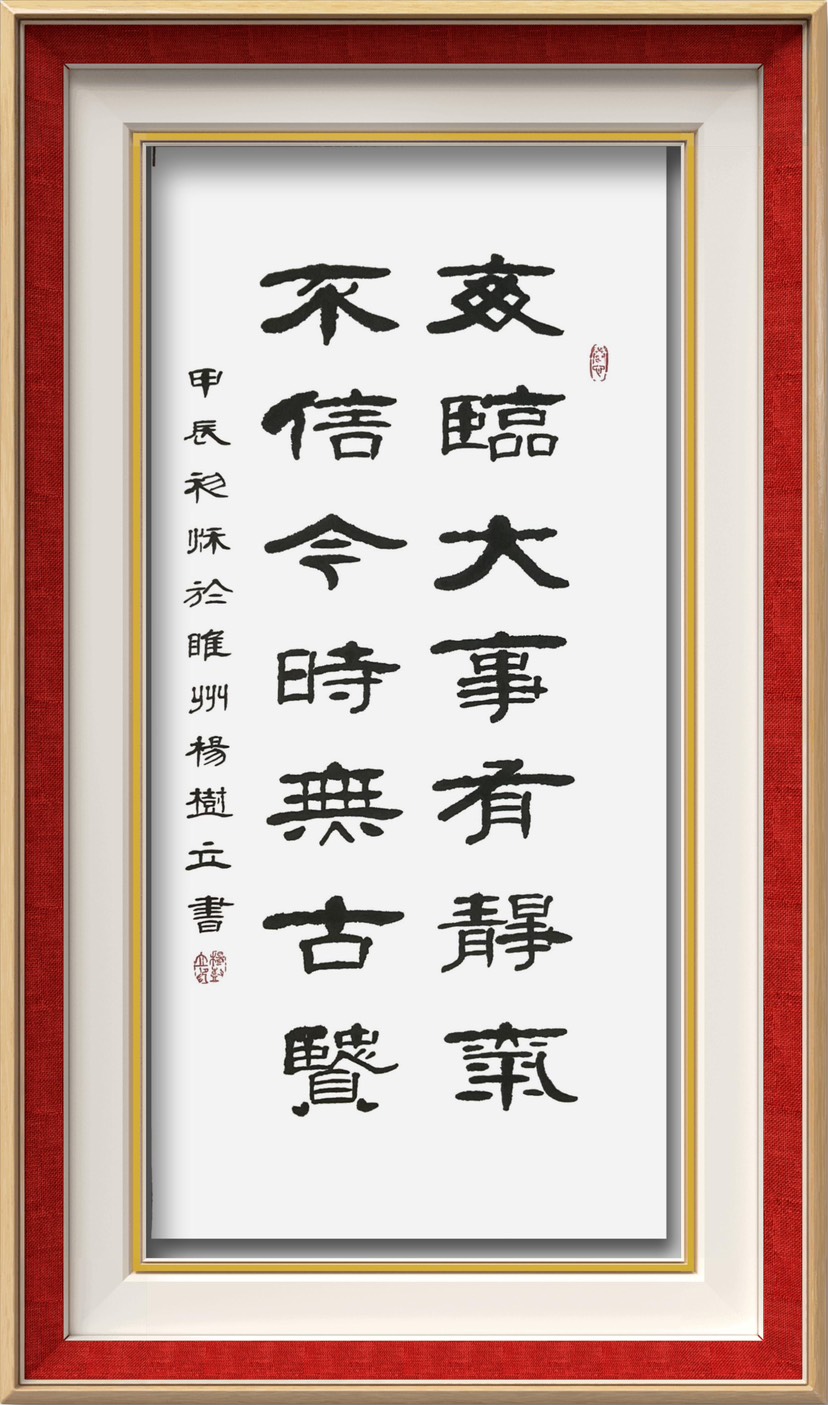 每臨大事有靜氣
不信今時無古賢
甲辰初秋於睢州楊樹立書